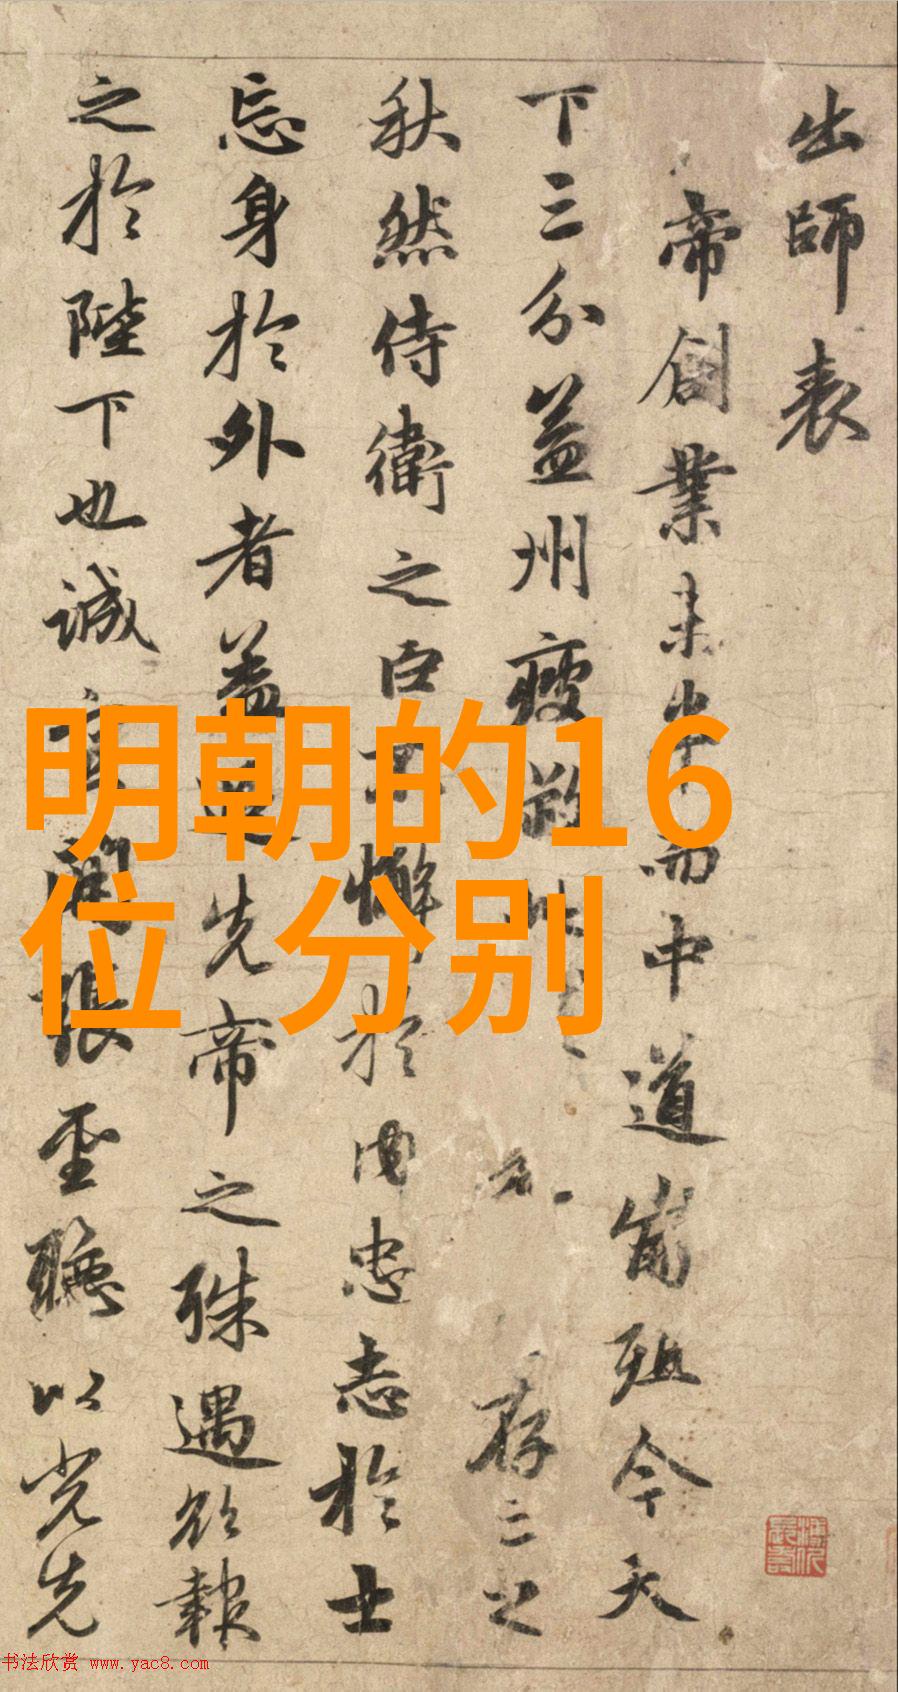 出師表
帝創業未半而中道崩殂今天
下三分益州疲敝此
存亡之
秋然侍衛之臣不懈於内忠志於士
忘身於外者蓋追先帝之殊遇欲報
之於陛下也誠宜開張聖聽以光先
明朝的16
位 分别
书法欣赏 www.yac8.com